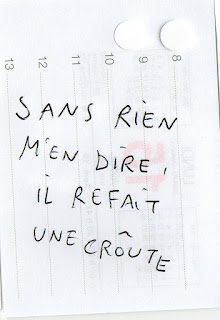 8
9
10
11
12
13
SANS RIEN
M'EN DIRE,
IL REFAIT
UNE CROÛTE